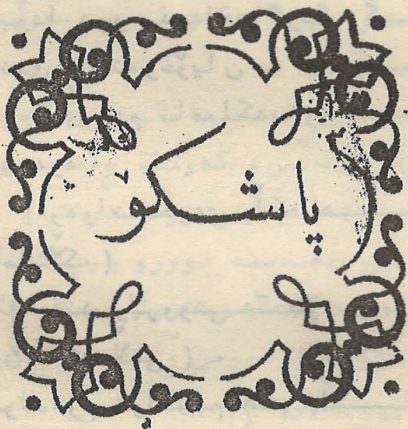 پاشکۆ